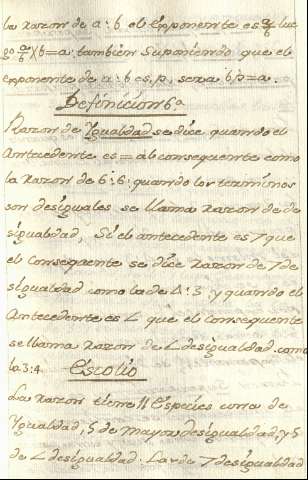 la razon de a : b el exponente es a/b lue
go a/b X b = a. tambien Suponiendo que el
exponente de a : b es p, sera bp = a.
Definicion 6ª
Razon de Ygualdad se dice quando el
Antecedente es = al consequente como
la razon de 6 : 6. quando los terminos
son desiguales se llama razon de de
sigualdad, Si el antecedente es 7 que
el consequente se dice razon de 7 de
sigualdad como la de 4 : 3. y quando el
Antecedente es L que el consequente
se llama razon de L desigualdad como
la 3 : 4. Escolio
La razon tiene 11 Especies una de
Ygualdad, 5 de mayor desigualdad, y 5
de L desigualdad. Las de 7 desigualdad